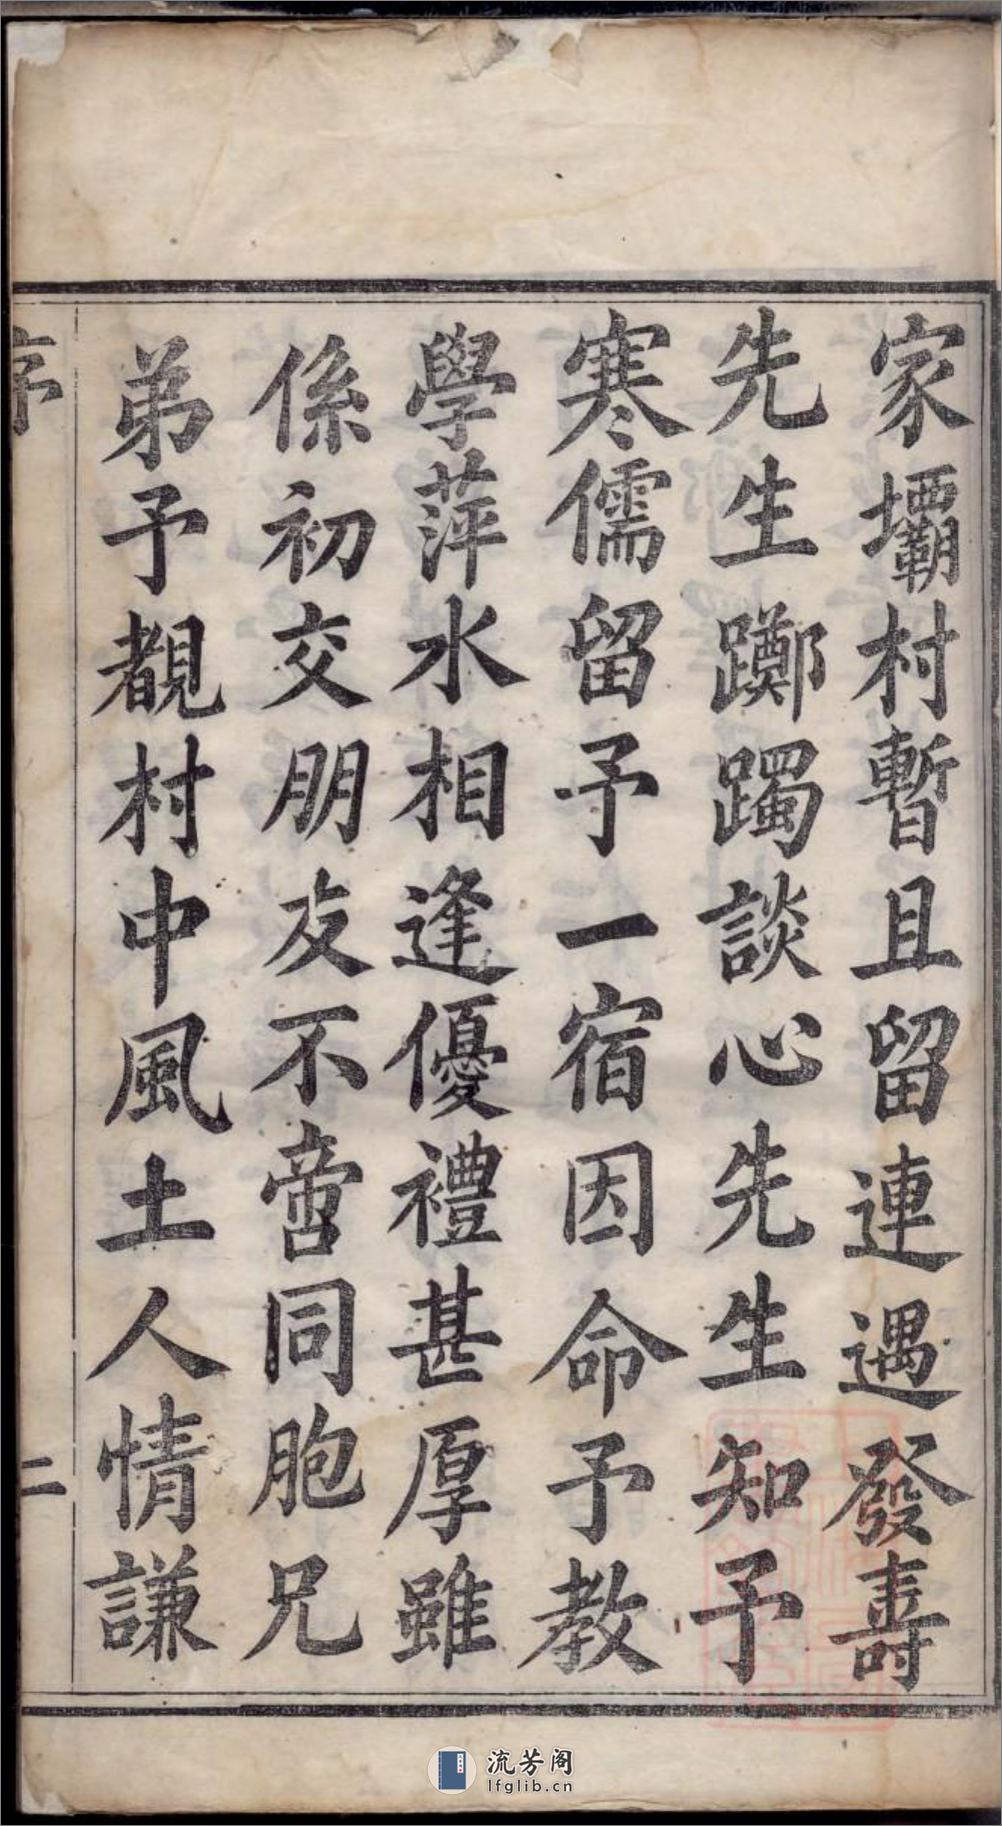 家壩村暫且留連遇發壽
先生躑躅談心先生知予
寒儒留予一宿因命予教
學萍水相逢優禮甚厚雖
係初交朋友不啻同胞兄
弟予覩村中風土人情謙
序
二
流芳阁
lfglib.cn